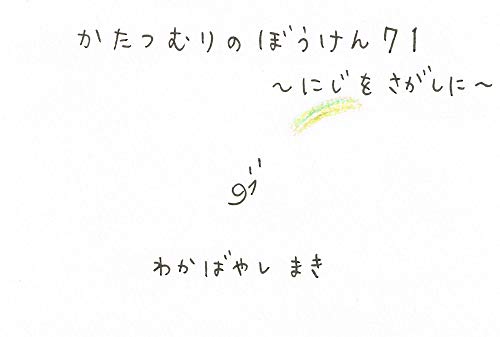 かたつむりのぼうけん71
~にじをさがしに~
わかばやし まき